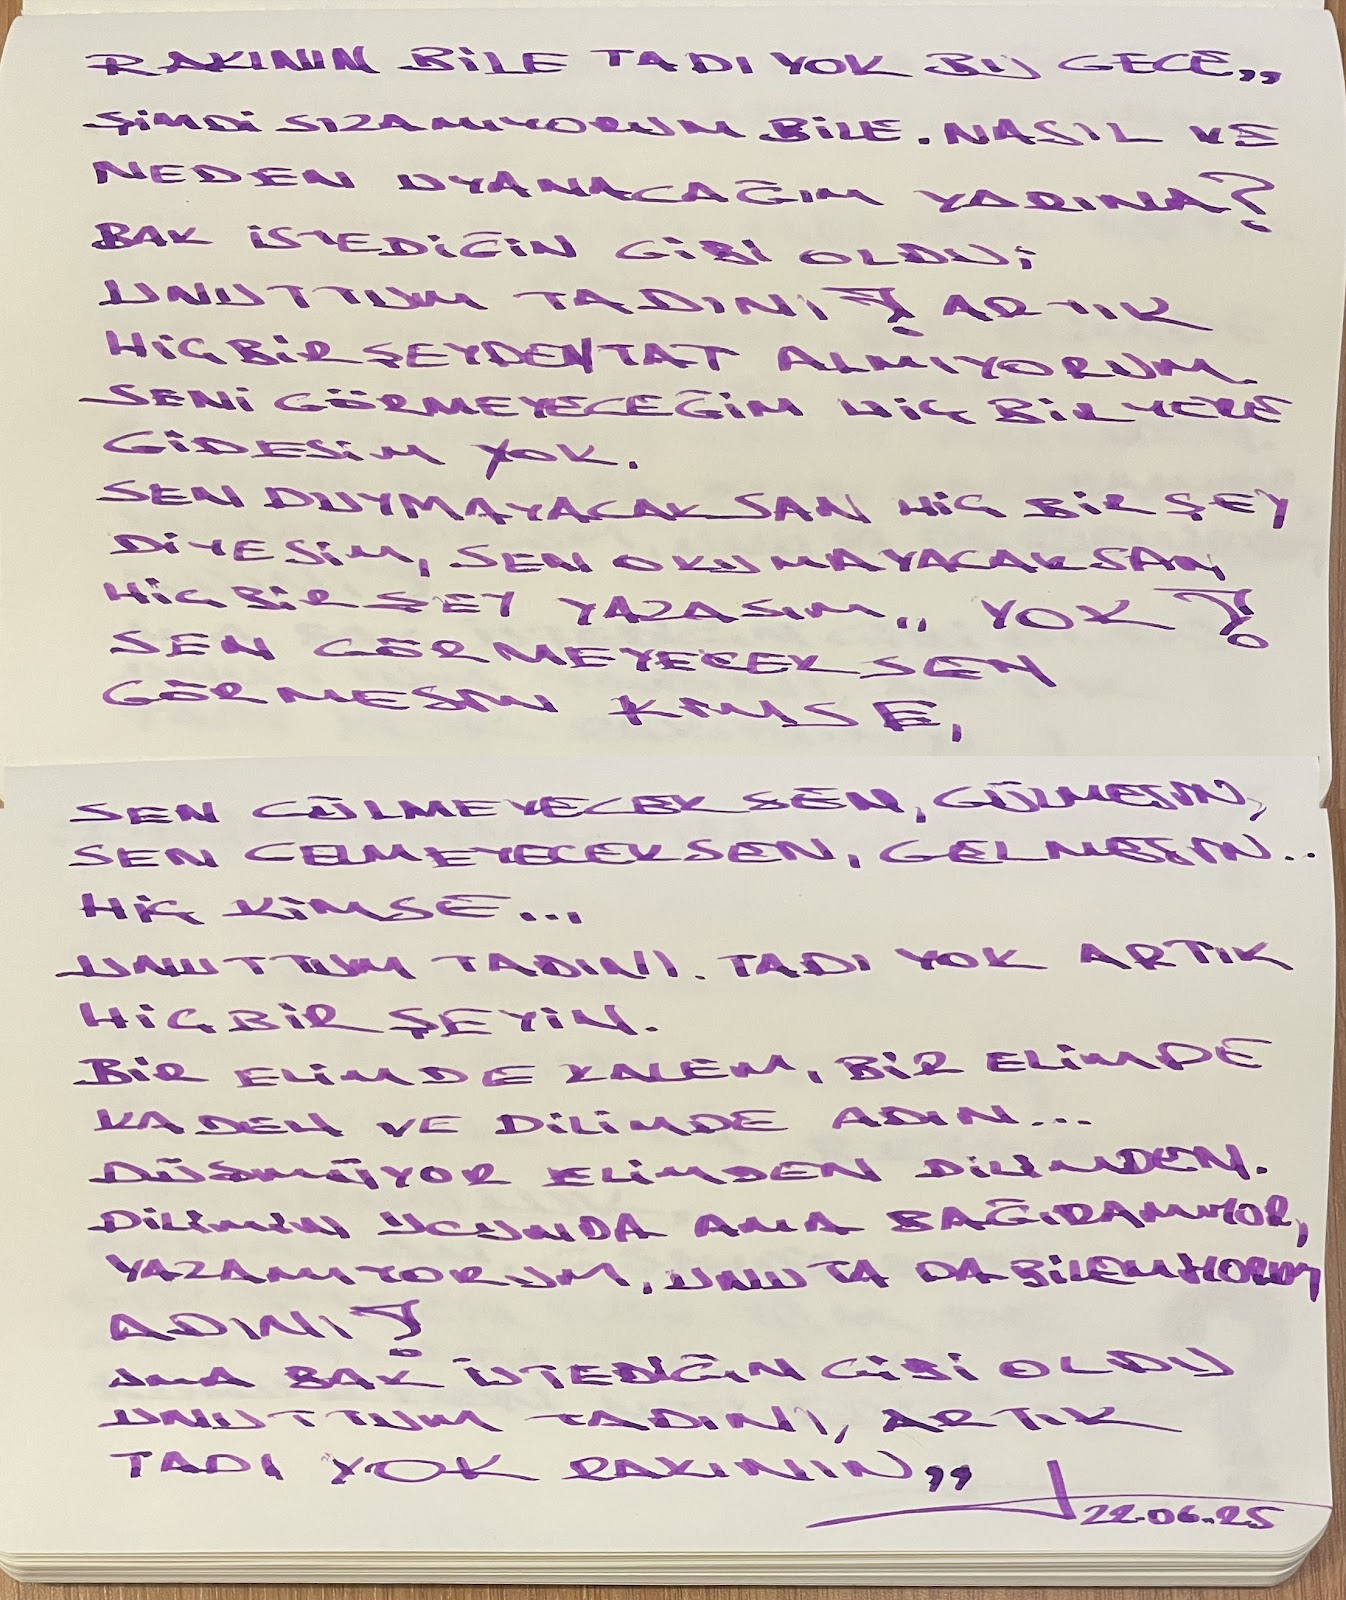 RAKININ BİLE TADI YOK BU GECE,,
ŞİMDİ SIZAMIYORUM BİLE. NASIL VE
NEDEN UYANACAĞIM YARINA?
BAK İSTEDİĞİN GİBİ OLDU;
UNUTTUM TADINI? ARTIK
HİÇBİR ŞEYDEN TAT ALMIYORUM.
SENİ GÖRMEYECEĞİM HİÇ BİR YERE
GİDESİM YOK.
SEN DUYMAYACAKSAN HİÇ BİR ŞEY
DİYESİM, SEN OKUMAYACAKSAN,
HİÇBİR ŞEY YAZASIM,, YOK?
SEN GÖRMEYECEKSEN
GÖRMESİN KİMSE,
SEN GÜLMEYECEKSEN, GÜLMESİN,
SEN GELMEYECEKSEN, GELMESİN..
HİÇ KİMSE...
UNUTTUM TADINI. TADI YOK ARTIK
HİÇBİR ŞEYİN.
BİR ELİMDE KALEM, BİR ELİMDE
KADEH VE DİLİMDE ADIN...
DÜŞMÜYOR ELİMDEN DİLİMDEN.
DİLİMİN UCUNDA AMA BAĞIRAMIYOR,
YAZAMIYORUM, UNUTA DA BİLEMİYORUM
ADINI?
AMA BAK İSTEDİĞİN GİBİ OLDU
UNUTTUM TADINI, ARTIK
TADI YOK RAKININ,,
22.06.25